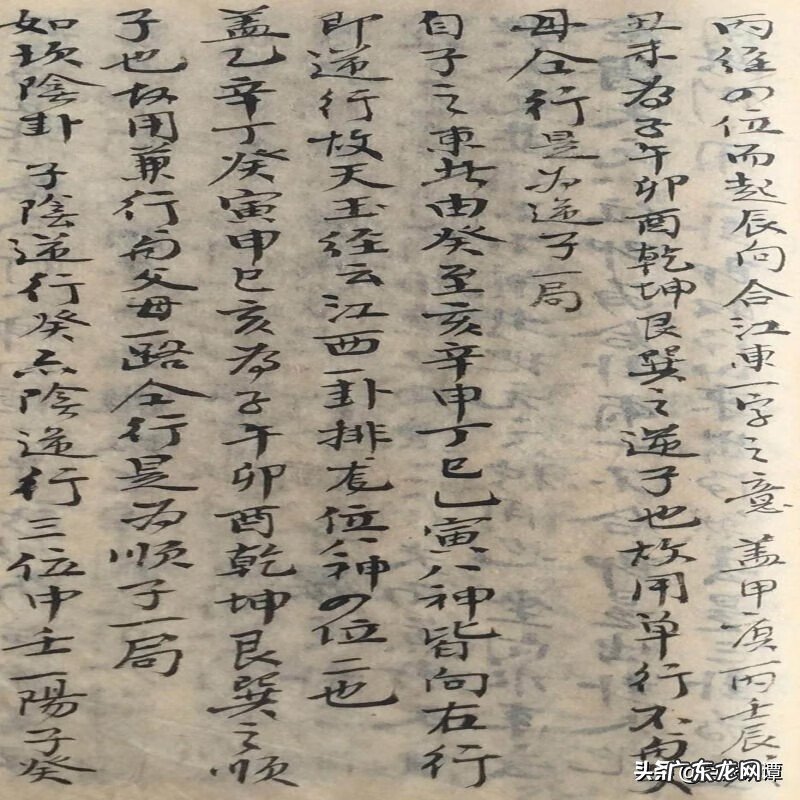 丙經四位而起辰向合江東一字之意 盖甲庚丙壬辰
丑未為子午卯酉乾坤艮巽之逆子也故用单行不與父
母仝行是为逆子一局
自子之東北由癸至亥辛申丁巳乙寅八神皆向右行
即逆行故天玉經云江西一卦排龙位八神四位二也
盖乙辛丁癸寅申巳亥為子午卯酉乾坤艮巽之順
子也故用兼行與父母一路仝行是为順子一局
如坎陰卦 子陰逆行癸亦陰逆行三位中壬一陽子癸
头 东龙网 潭